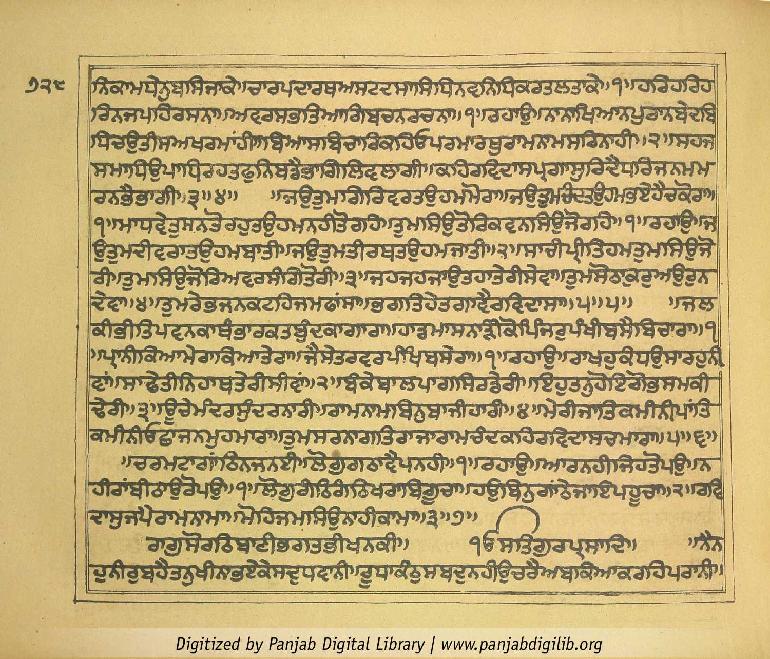 ੭੨੯
ਨਿਕਾਮਧੇਨੁਬਸਿਜਾਕੇ॥ਚਾਰਪਦਾਰਥਅਸਟਦਸਾਸਿਧਿਨਵਨਿਧਿਕਰਤਲਤਾਕੇ॥੧॥ਹਰਿਹਰਿਹ
ਰਿਨਜਪਹਿਰਸਨਾ॥ਅਵਰਸਭਤਿਆਗਿਬਚਨਰਚਨਾ॥੧॥ਰਹਾਉ॥ਨਾਨਾਖਿਆਨਪੁਰਾਨਬੇਦਬਿ
ਧਿਚਉਤੀਸਅਖਰਮਾਂਹੀ॥ਬਿਆਸਬਿਚਾਰਿਕਹਿਓਪਰਮਾਰਥੁਰਾਮਨਾਮਸਰਿਨਾਹੀ॥੨॥ਸਹਜ
ਸਮਾਧਿਉਪਾਧਿਰਹਤਫੁਨਿਬਡੈਭਾਗਿਲਿਵਲਾਗੀ॥ਕਹਿਰਵਿਦਾਸਪ੍ਰਗਾਸੁਰਿਦੈਧਰਿਜਨਮਮ
ਰਨਭੈਭਾਗੀ॥੩॥੪॥ ॥ਜਉਤੁਮਗਿਰਿਵਰਤਉਹਮਮੋਰਾ॥ਜਉਤੁਮਚੰਦਤਉਹਮਭਏਹੈਚਕੋਰਾ॥
੧॥ਮਾਧਵੇਤੁਮਨਤੋਰਹੁਤਉਹਮਨਹੀਤੋਰਹਿ॥ਤੁਮਸਿਉਤੋਰਿਕਵਨਸਿਉਜੋਰਹਿ॥੧॥ਰਹਾਉ॥ਜ
ਉਤੁਮਦੀਵਰਾਤਉਹਮਬਾਤੀ॥ਜਉਤੁਮਤੀਰਥਤਉਹਮਜਾਤੀ॥੨॥ਸਾਚੀਪ੍ਰੀਤਿਹਮਤੁਮਸਿਉਜੋ
ਰੀ॥ਤੁਮਸਿਉਜੋਰਿਅਵਰਸੰਗਿਤੋਰੀ॥੩॥ਜਹਜਹਜਾਉਤਹਾਤੇਰੀਸੇਵਾ॥ਤੁਮਸੋਠਾਕੁਰੁਅਉਰੁਨ
ਦੇਵਾ॥੪॥ਤੁਮਰੇਭਜਨਕਟਹਿਜਮਫਾਂਸਾ॥ਭਗਤਿਹੇਤਗਾਵੈਰਵਿਦਾਸਾ॥੫॥੫॥ ॥ਜਲ
ਕੀਭੀਤਿਪਵਨਕਾਥੰਭਾਰਕਤਬੁੰਦਕਾਗਾਰਾ॥ਹਾਡਮਾਸਨਾੜੀਕੋਪਿੰਜਰੁਪੰਖੀਬਸੈਬਿਚਾਰਾ॥੧
॥ਪ੍ਰਾਨੀਕਿਆਮੇਰਾਕਿਆਤੇਰਾ॥ਜੈਸੇਤਰਵਰਪੰਖਿਬਸੇਰਾ॥੧॥ਰਹਾਉ॥ਰਾਖਹੁਕੰਧਉਸਾਰਹੁਨੀ
ਵਾਂ॥ਸਾਢੇਤੀਨਿਹਾਥਤੇਰੀਸੀਵਾਂ॥੨॥ਬੰਕੇਬਾਲਪਾਗਸਿਰਡੇਰੀ॥ਇਹੁਤਨੁਹੋਇਗੋਭਸਮਕੀ
ਢੇਰੀ॥੩॥ਊਚੇਮੰਦਰਸੁੰਦਰਨਾਰੀ॥ਰਾਮਨਾਮਬਿਨੁਬਾਜੀਹਾਰੀ॥੪॥ਮੇਰੀਜਾਤਿਕਮੀਨੀਪਾਂਤਿ
ਕਮੀਨੀਓਛਾਜਨਮੁਹਮਾਰਾ॥ਤੁਮਸਰਨਾਗਤਿਰਾਜਾਰਾਮਚੰਦਕਹਿਰਵਿਦਾਸਚਮਾਰਾ॥੫॥੬॥
॥ਚਮਰਟਾਗਾਂਠਿਨਜਨਈ॥ਲੋਗੁਗਠਾਵੈਪਨਹੀ॥੧॥ਰਹਾਉ॥ਆਰਨਹੀਜਿਹਤੋਪਉ॥ਨ
ਹੀਰਾਂਬੀਠਾਉਰੋਪਉ॥੧॥ਲੋਗੁਗੰਠਿਗੰਠਿਖਰਾਬਿਗੂਚਾ॥ਹਉਬਿਨੁਗਾਂਠੇਜਾਇਪਹੂਚਾ॥੨॥ਰਵਿ
ਦਾਸੁਜਪੈਰਾਮਨਾਮਾ॥ਮੋਹਿਜਮਸਿਉਨਾਹੀਕਾਮਾ॥੩॥੭॥
ਰਾਗੁਸੋਰਠਿਬਾਣੀਭਗਤਭੀਖਨਕੀ॥ ੴਸਤਿਗੁਰਪ੍ਰਸਾਦਿ॥ ॥ਨੈਨ
ਹੁਨੀਰੁਬਹੈਤਨੁਖੀਨਾਭਏਕੇਸਦੁਧਵਾਨੀ॥ਰੂਧਾਕੰਠੁਸਬਦੁਨਹੀਉਚਰੈਅਬਕਿਆਕਰਹਿਪਰਾਨੀ॥
Digitized by Panjab Digital Library | www.panjabdigilib.org